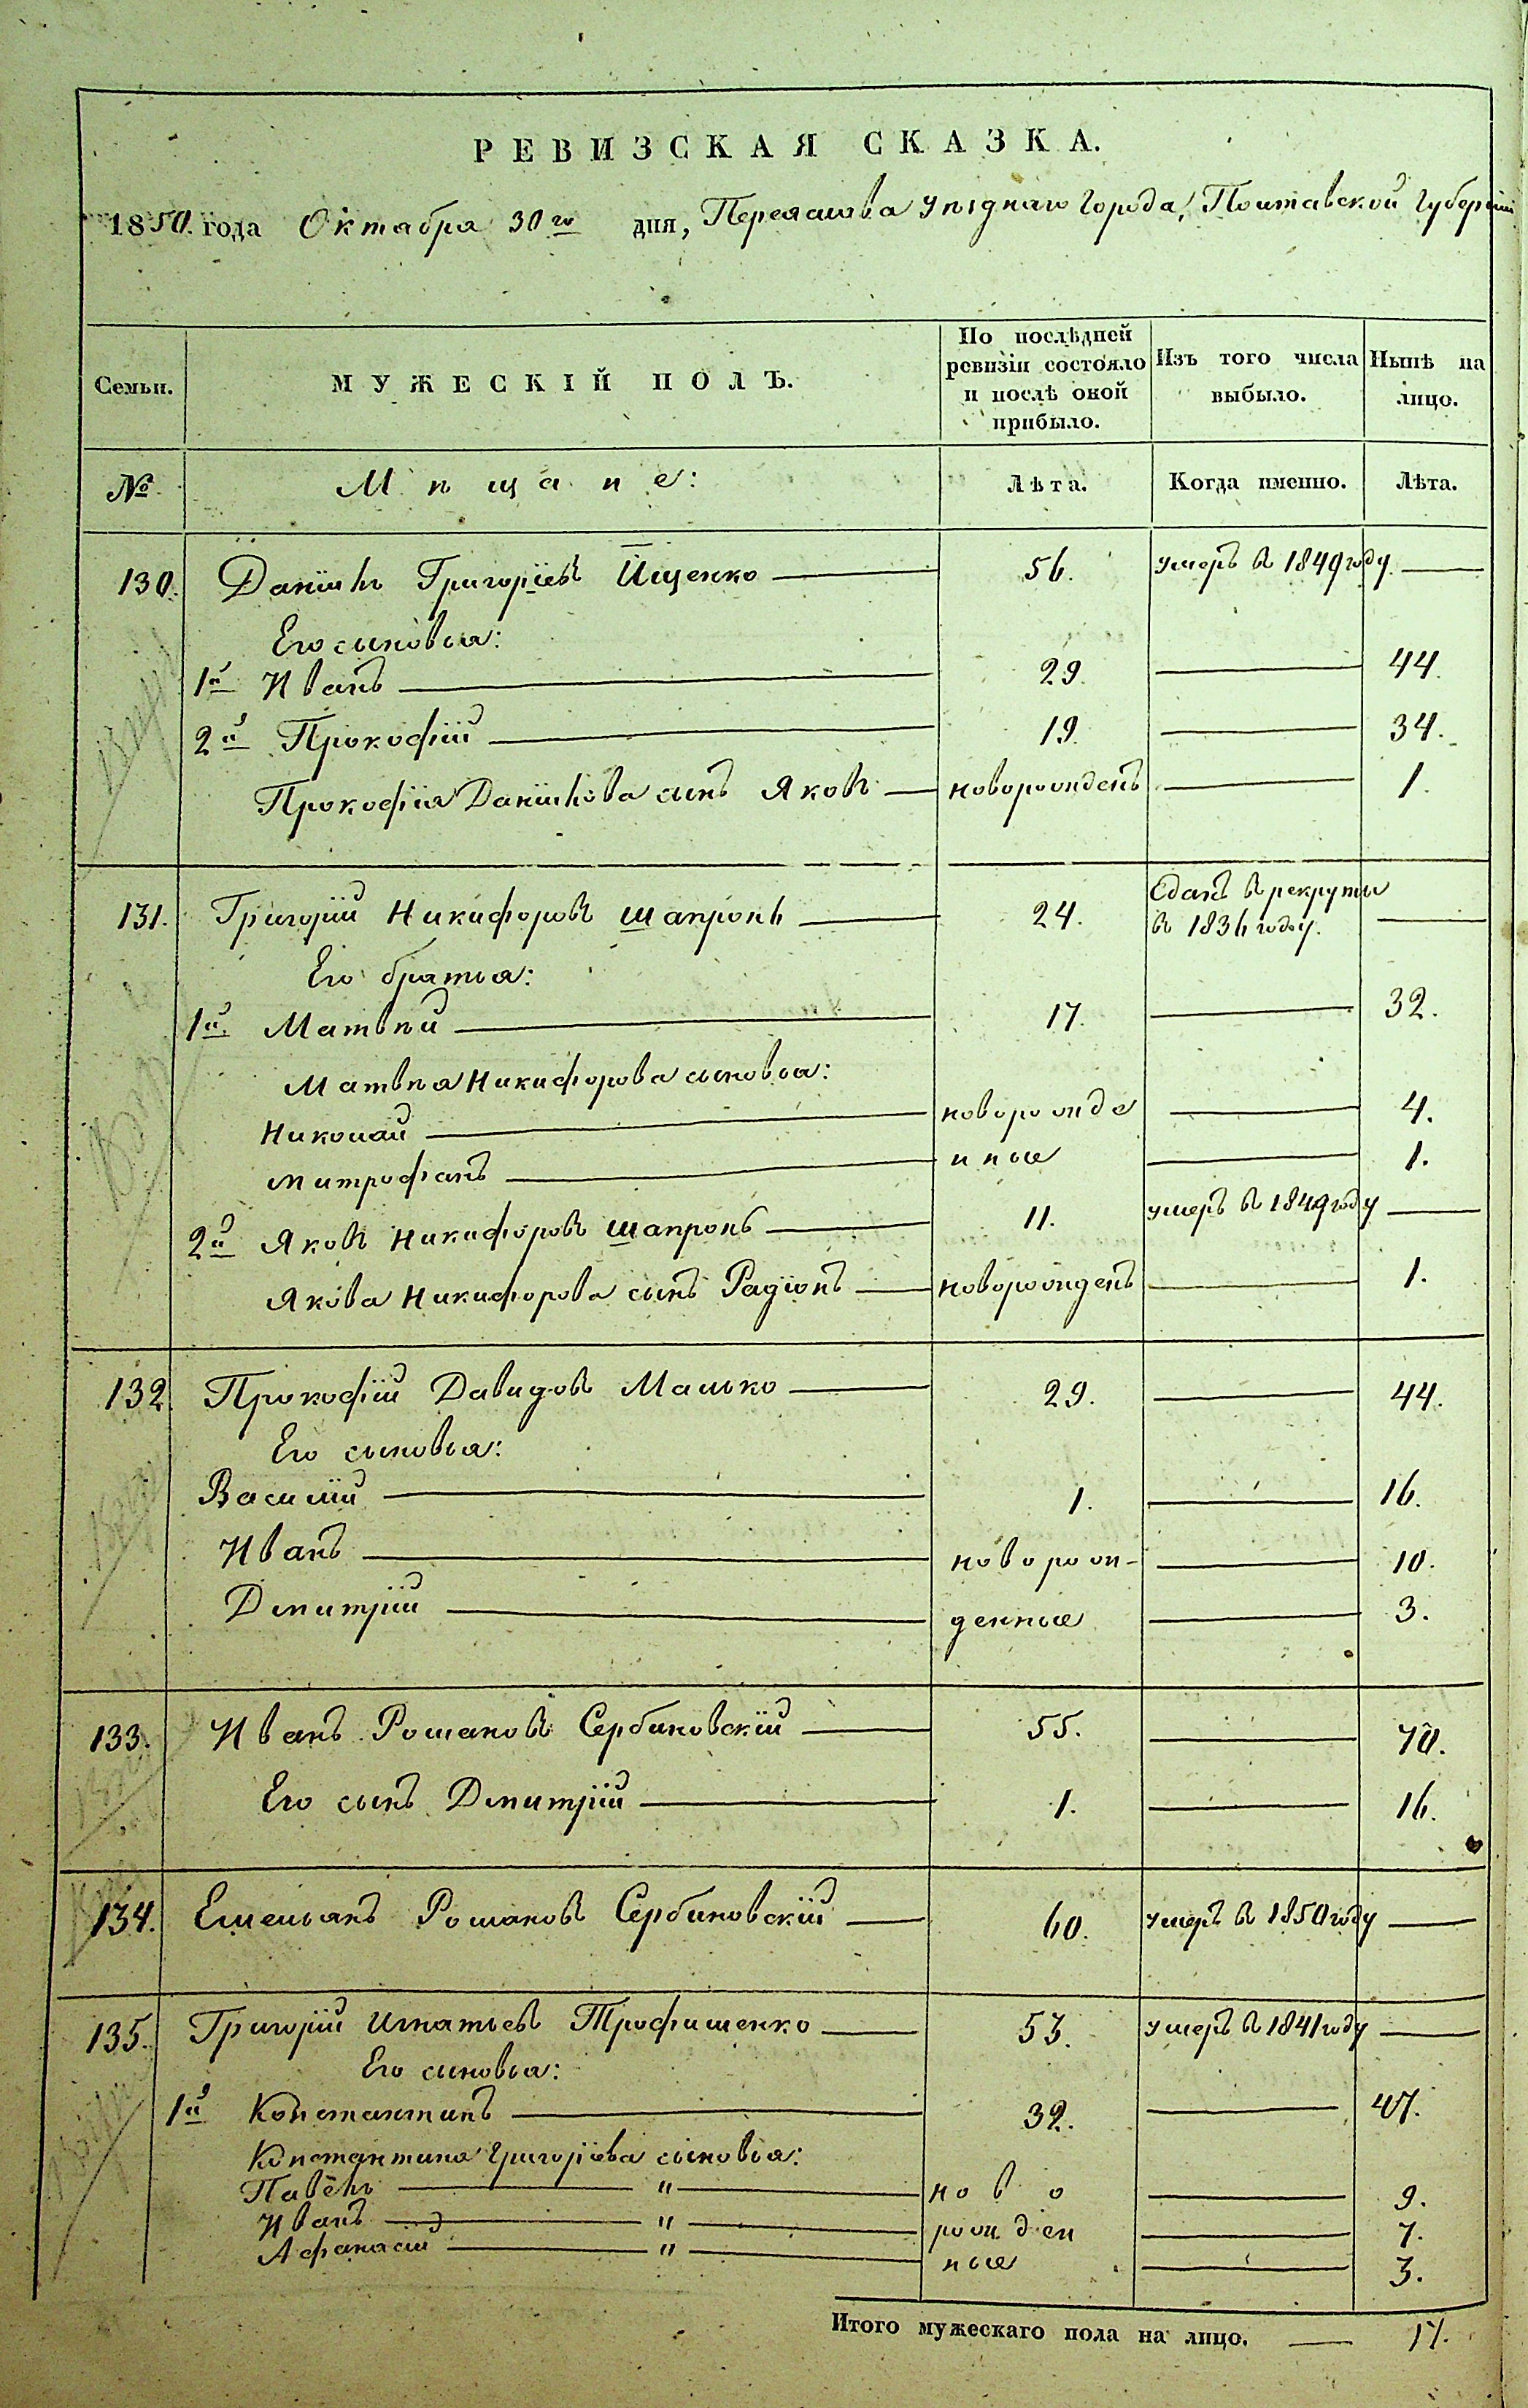 РЕВИЗСКАЯ СКАЗКА.
1850. года Октября 30го дня, Переяслова уѣзднаго города, Полтавской губерніи
Семьи. МУЖЕСКІЙ ПОЛЪ. По послѣдней ревизіи состояло и послѣ оной прибыло. Изъ того числа выбыло. Нынѣ на лицо.
№ Мѣщане: Лѣта. Когда именно. Лѣта.
130. Даніилъ Григоріевъ Йщенко — 56. умеръ в 1849 году. —
Его сыновья:
1й Иванъ — 29. — 44.
2й Прокофій — 19. — 34.
Прокофія Даніилова сынъ Яковъ — новорожденъ — 1.
131. Григорій Никифоровъ Шапронъ — 24. Сданъ в рекруты
в 1836 году. —
Его братья:
1й Матвѣй — 17. — 32.
Матвѣя Никифорова сыновья:
Николай — новорожде — 4.
Митрофанъ — нные — 1.
2й Яковъ Никифоровъ Шапронъ — 11. умеръ в 1849 году —
Якова Никифорова сынъ Радіонъ — новорожденъ — 1.
132. Прокофій Давидовъ Малько — 29. — 44.
Его сыновья:
Василій — 1. — 16.
Иванъ — новорож- — 10.
Дмитрій — денные — 3.
133. Иванъ Романовъ Сербиновскій — 55. — 70.
Его сынъ Дмитрій — 1. — 16.
134. Емельянъ Романовъ Сербиновскій — 60. умеръ в 1850 году —
135. Григорій Игнатьевъ Трофименко — 53. умеръ в 1841 году —
Его сыновья:
1й Константинъ — 32. — 47.
Константина Григоріева сыновья:
Павелъ — " — ново — 9.
Иванъ — " — рожден — 7.
Афанасій — " — ные — 3.
Итого мужескаго пола на лицо. — 17.